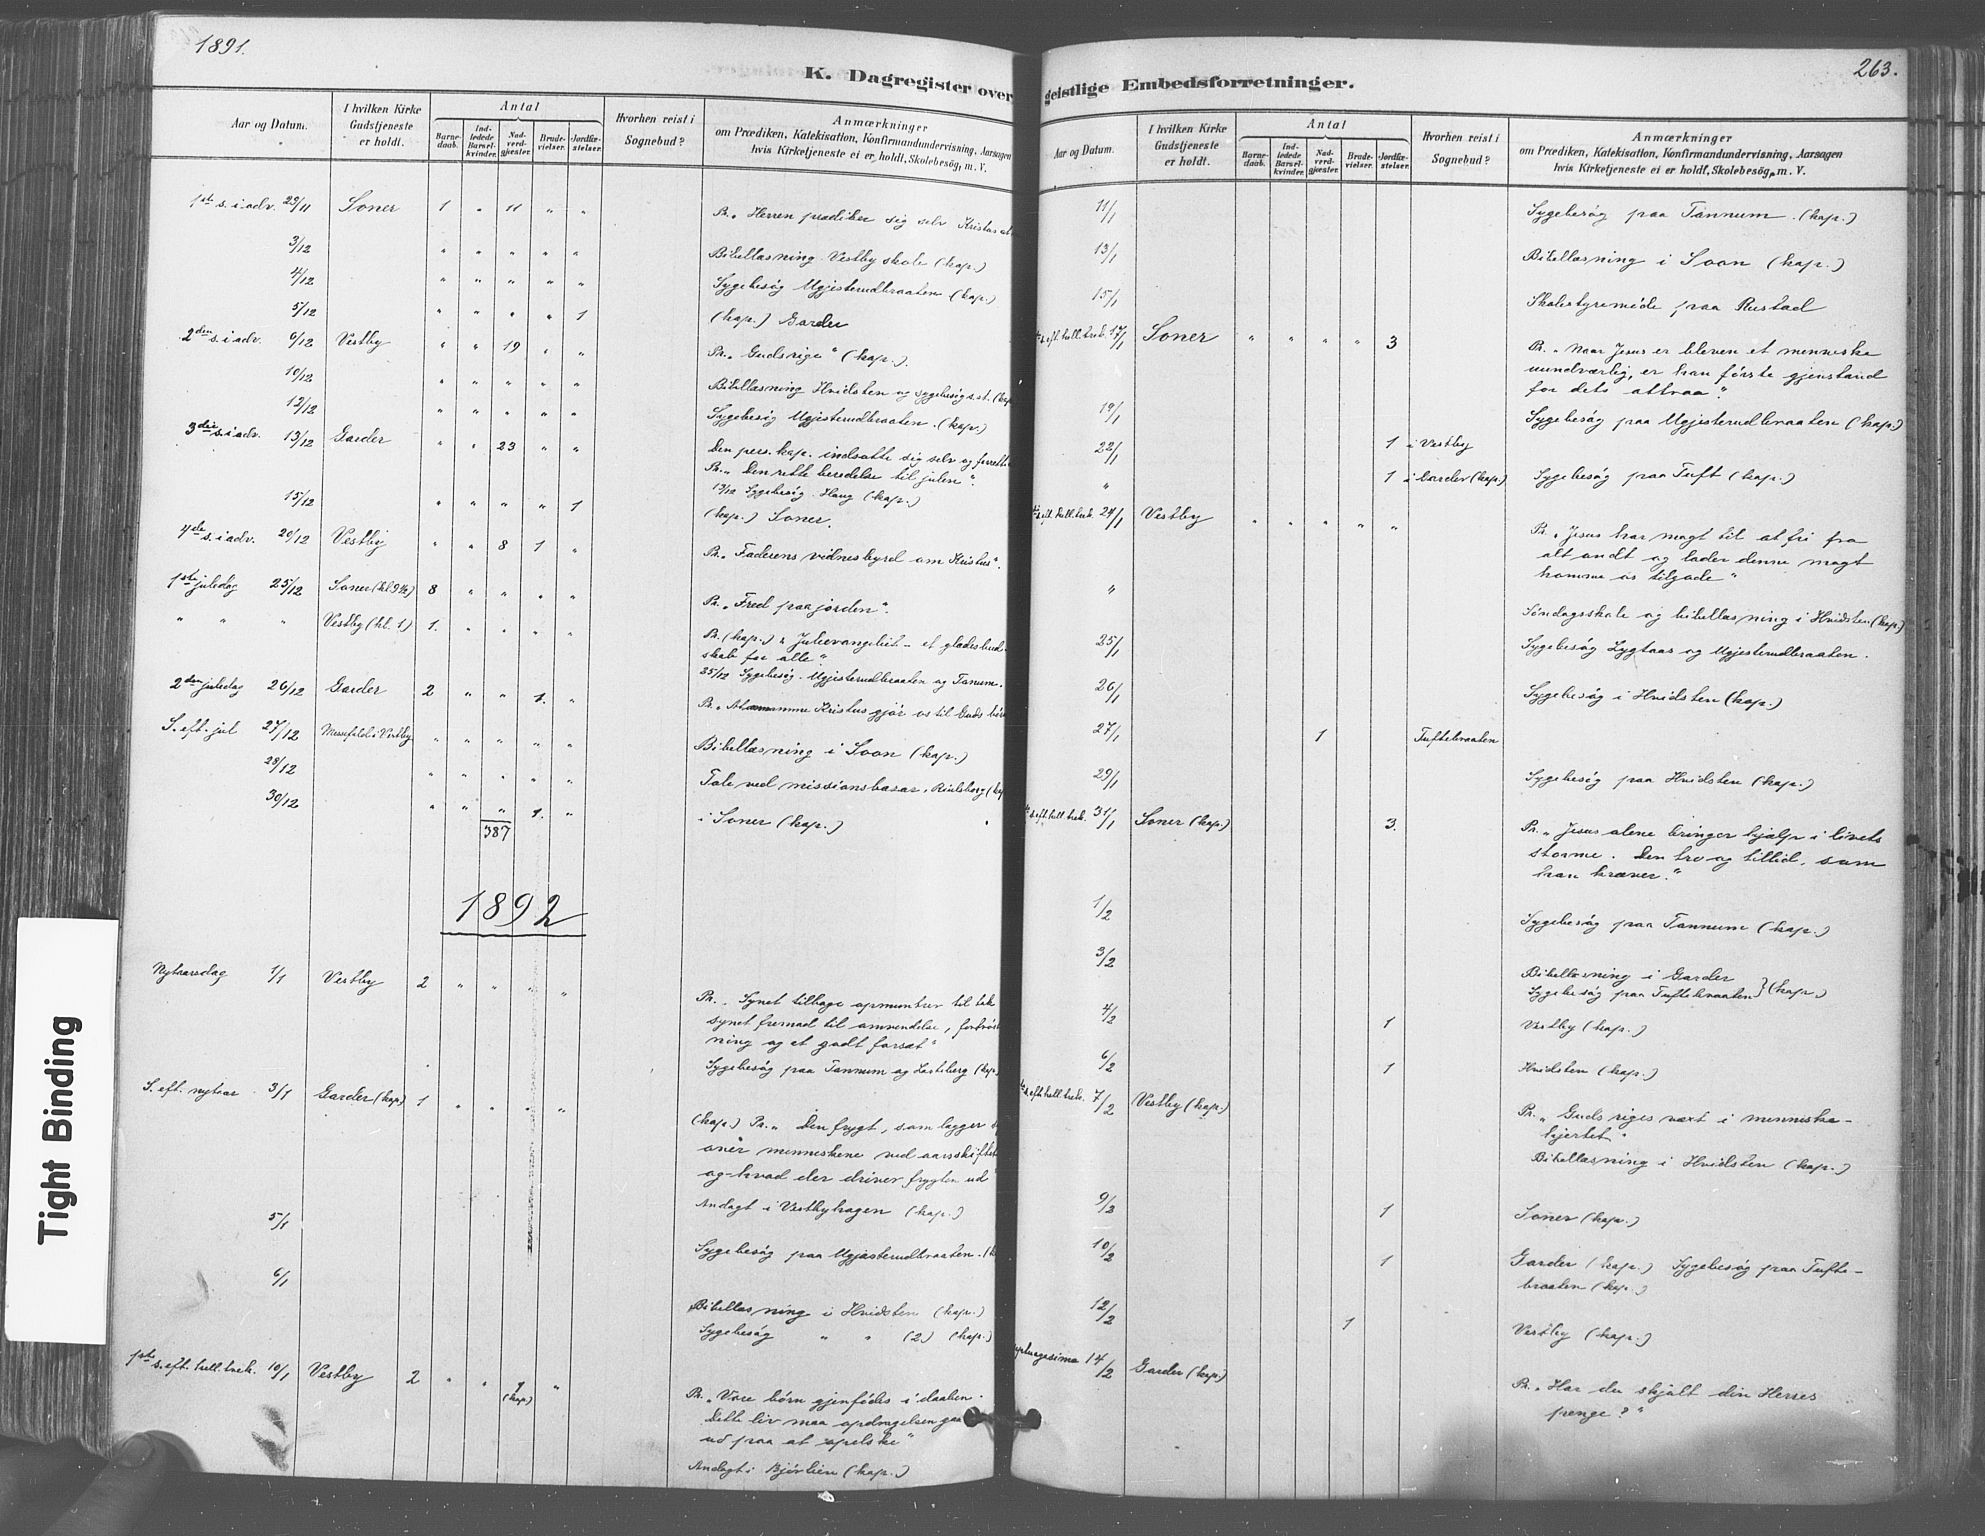 1891.
K. Dagregister over
Aar og Datum.
I hvilken Kirke Gudstjeneste er holdt.
Antal
Barne-daab.
Ind-ledede Barsel-kvinder.
Nad-verd-gjester.
Brude-vielser.
Jordfæ-stelser.
Hvorhen reist i Sognebud?
Anmærkninger
om Prædiken, Katekisation, Konfirmandundervisning, Aarsagen
hvis Kirketjeneste ei er holdt, Skolebesög, m. V.
1ste s. i adv. 29/11 Soner 1 " 11 " " Pr. „Herren prædiker sig selv Kristus
3/12 " " " " " Bibellæsning Vestby skole (kap.)
4/12 " " " " " Sygebesög Ugjesterudbraaten (kap.)
5/12 " " " " 1 (kap.) Garder
2den s. i adv. 6/12 Vestby " " 19 " " Pr. „Guds rige" (kap.).
10/12 " " " " " Bibellæsning Hvidsten og sygebesög s. st. (kap
12/12 " " " " " Sygebesög Ugjesterudbraaten. (kap.)
3die s. i adv. 13/12 Garder " " 23 " " Den pers. kap. indsatte sig selv og forrett
Pr. „Den rette beredelse til julen".
13/12 Sygebesög. Haug (kap.)
15/12 " " " " 1 (kap.) Soner.
4de s. i adv. 20/12 Vestby " " 8 1 " Pr. „Faderens vidnesbyrd om Kristus".
1ste juledag 25/12 Soner (kl. 9½) 8 " " " " Pr. „Fred paa jorden".
" " " Vestby (kl. 1) 1. " " " " Pr. (kap.) „Julievangeliet – et gladesbud-
skab for alle".
25/12 Sygebesög. Ugjesterudbraaten og Tanum.
2den juledag 26/12 Garder 2 " " 1. " Pr. „ Kristus gjör os til Guds börn
S. eft. jul 27/12 i Vestby " " " " " Bibellæsning i Soon (kap.)
28/12 " " " " " Tale ved missionsbasar,
30/12 " " " 1. " i Soner (kap.)
387
1892
Nytaarsdag 1/1 Vestby 2 " " " " Pr. „Synet tilbage opmuntrer til tak
synet fremad til omvendelse, fortröst
ning og et godt forsæt"
Sygebesög paa Tannum og (kap.
S. eft. nytaar 3/1 Garder (kap) 1 " " " " (kap.) Pr. „Den frygt, som lægger
over menneskene ved aarsskiftet
og hvad der driver frygten ud
Andagt i Vestbyhagen (kap.)
5/1 Sygebesög paa Ugjesterudbraaten. (k
6/1 Bibellæsning i Hvidsten (kap.)
Sygebesög " " (2) (kap.)
1ste s. eft. hell. trek. 10/1 Vestby 2 " " (kap) " Pr. „Vore börn gjenfödes i daaben.
Dette liv maa opdragelsen gaa
ud paa at opelske"
Andagt i Bjørlien (kap.)
263.
geistlige Embedsforretninger.
Aar og Datum.
I hvilken Kirke Gudstjeneste er holdt.
Antal
Barne-daab.
Ind-ledede Barsel-kvinder.
Nad-verd-gjester.
Brude-vielser.
Jordfæ-stelser.
Hvorhen reist i Sognebud?
Anmærkninger
om Prædiken, Katekisation, Konfirmandundervisning, Aarsagen
hvis Kirketjeneste ei er holdt, Skolebesög, m. V.
11/1 Sygebesög paa Tannum. (kap.)
13/1 Bibellæsning i Soon (kap.)
15/1 Skolestyremöde paa Rustad
s. eft. hell. trek. 17/1 Soner " " " " 3 Pr. „Naar Jesus er bleven et menneske
uundværlig, er han förste gjenstand
for dets attraa".
19/1 Sygebesög paa Ugjesterudbraaten (kap.)
22/1 1 i Vestby
" 1 i Garder (kap.) Sygebesög paa Tuft (kap.)
s. eft. hell. trek. 24/1 Vestby " " " " " Pr. „Jesus har magt til at fri fra
alt ondt og lader denne magt
komme os tilgode"
" Söndagsskole og bibellæsning i Hvidsten (kap.)
25/1 Sygebesög Lygtaas og Ugjesterudbraaten.
26/1 Sygebesög i Hvidsten (kap.)
27/1 1 Tuftebraaten
29/1 Sygebesög paa Hvidsten (kap.)
s. eft. hell. trek. 31/1 Soner (kap.) 3. Pr. „Jesus alene bringer hjælp i livets
storme. Den tro og tillid, som
han kræver."
1/2 Sygebesög paa Tannum (kap.)
3/2 Bibellæsning i Garder
Sygebesög paa Tuftebraaten } (kap.)
4/2 1 Vestby (kap.)
6/2 1 Hvidsten (kap.)
s. eft. hell. trek. 7/2 Vestby (kap.) Pr. „Guds riges vært i menneske-
hjertet"
Bibellæsning i Hvidsten (kap.)
9/2 1 Soner (kap.)
10/2 1 Garder (kap.) Sygebesög paa Tufte-
braaten (kap.)
12/2 1 Vestby (kap.)
14/2 Garder (kap.) Pr. „Har du skjult din Herres
penge?"
Tight Binding